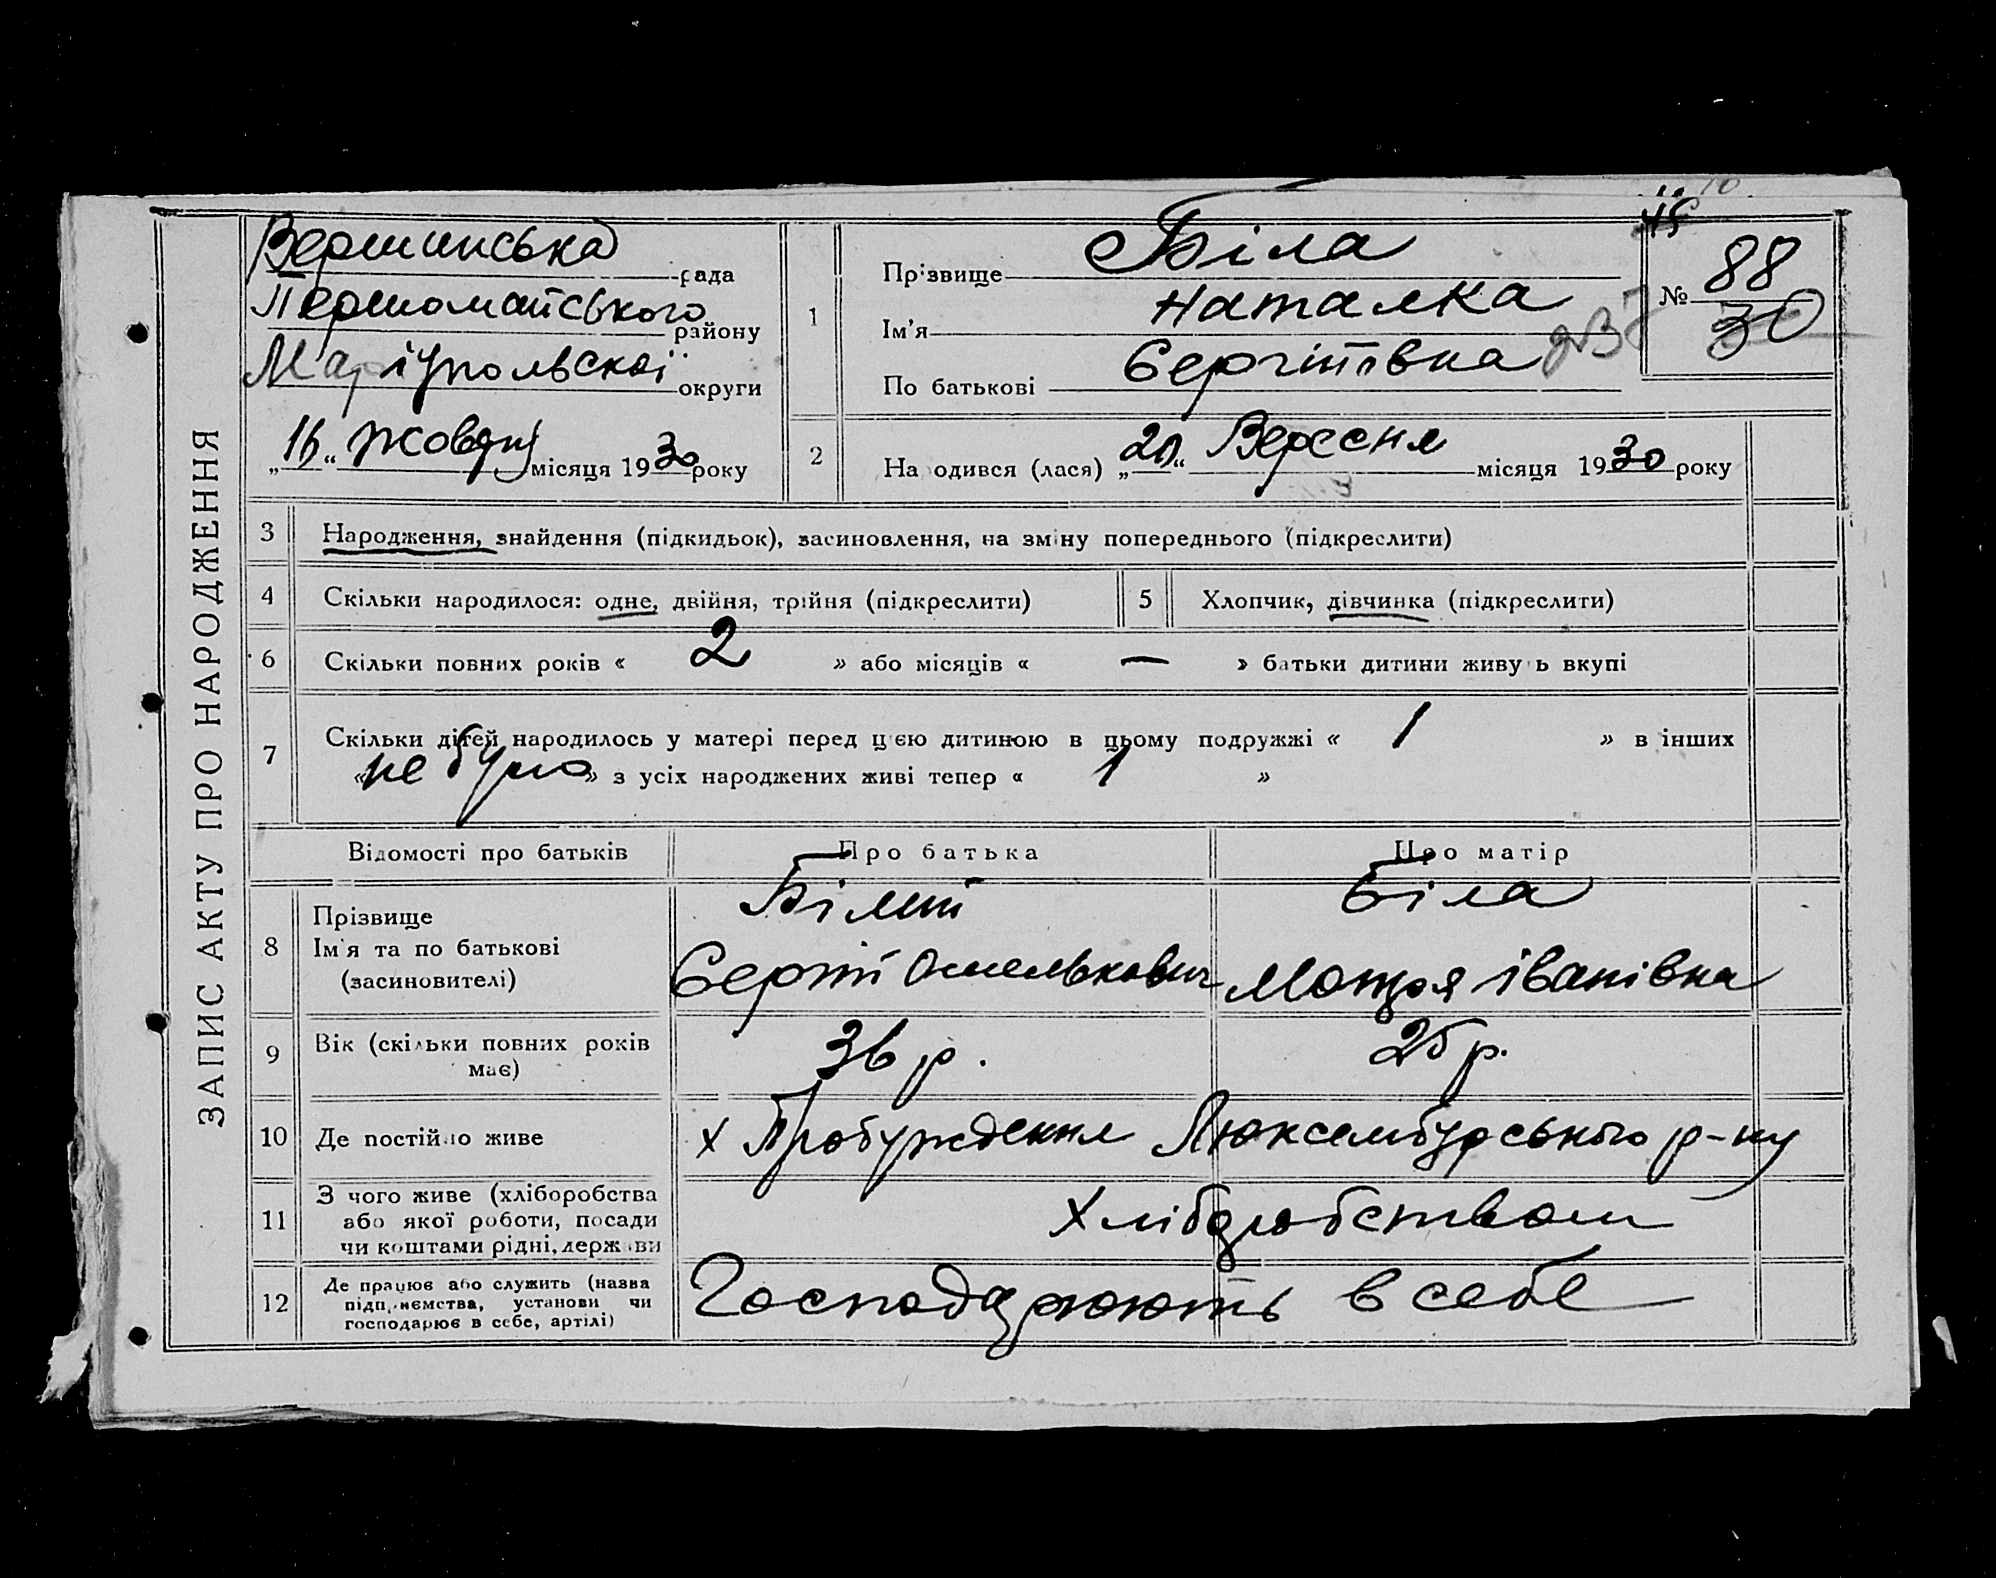 ЗАПИС АКТУ ПРО НАРОДЖЕННЯ
Вершинська рада
Першомайського району
Маріупольскої округи
„16“ жовтня місяця 1930 року
1
Прізвище Біла
Ім'я Наталка
По батькові Сергіївна
45
№ 88
30
2 На одився (лася) „20“ Вересня місяця 1930 року
3 Народження, знайдення (підкидьок), засиновлення, на зміну попереднього (підкреслити)
4 Скільки народилося: одне, двійня, трійня (підкреслити) 5 Хлопчик, дівчинка (підкреслити)
6 Скільки повних років « 2 » або місяців « — » батьки дитини живуть вкупі
7 Скільки дітей народилось у матері перед цією дитиною в цьому подружжі « 1 » в інших
« не було » з усіх народжених живі тепер « 1 »
Відомості про батьків Про батька Про матір
8 Прізвище
Ім'я та по батькові
(засиновителі)
Білий Біла
Сергій Омелькович Мотря Іванівна
9 Вік (скільки повних років має) 36 р. 25 р.
10 Де постійно живе х Пробуждения Люксембурського р-ну
11 З чого живе (хліборобства
або якої роботи, посади
чи коштами рідні, держави
Хліборобством
12 Де працює або служить (назва
підприємства, установи чи
господарює в себе, артілі)
Господарюють в себе